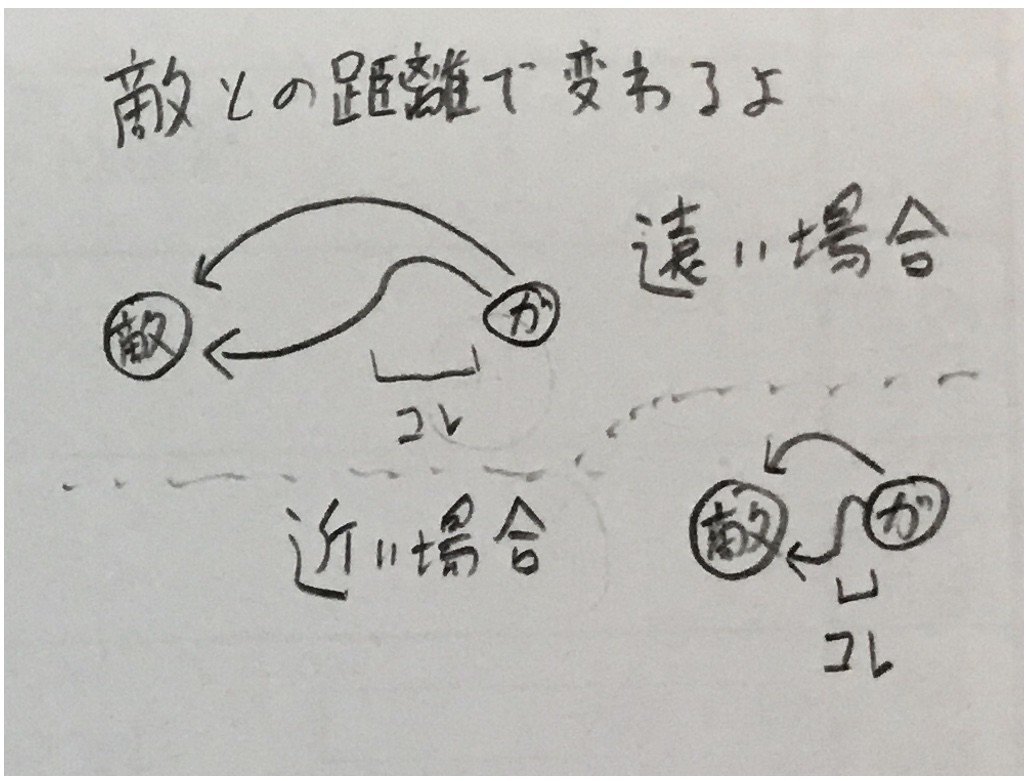 敵との距離で変わるよ
遠い場合
敵
ガ
コレ
近い場合
敵
ガ
コレ